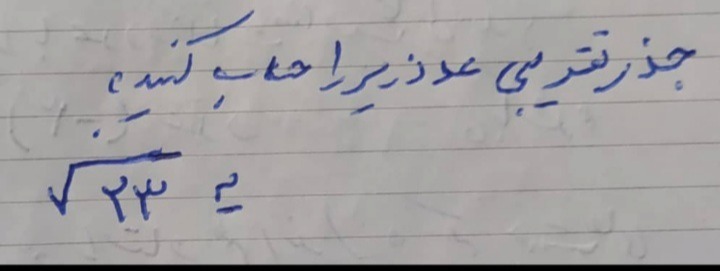 جذر تقریبی عدد زیر را حساب کنید؛
√۲۳ =